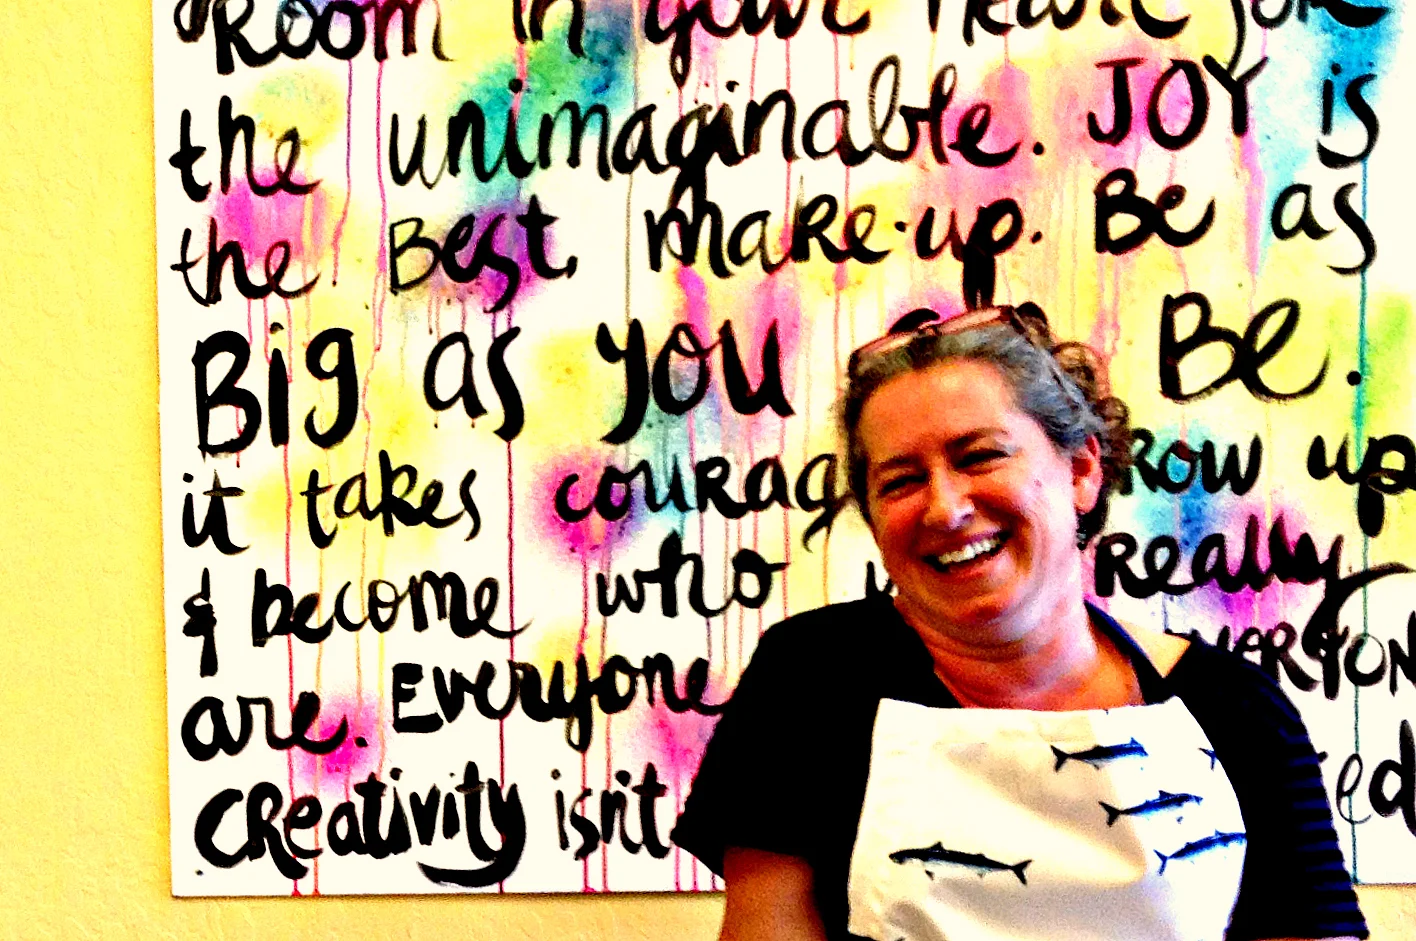 Room in your heart for
the unimaginable. JOY is
the Best make-up. Be as
Big as you Be.
it takes courag row up
& become who really
are. Everyone
Creativity isn't ed